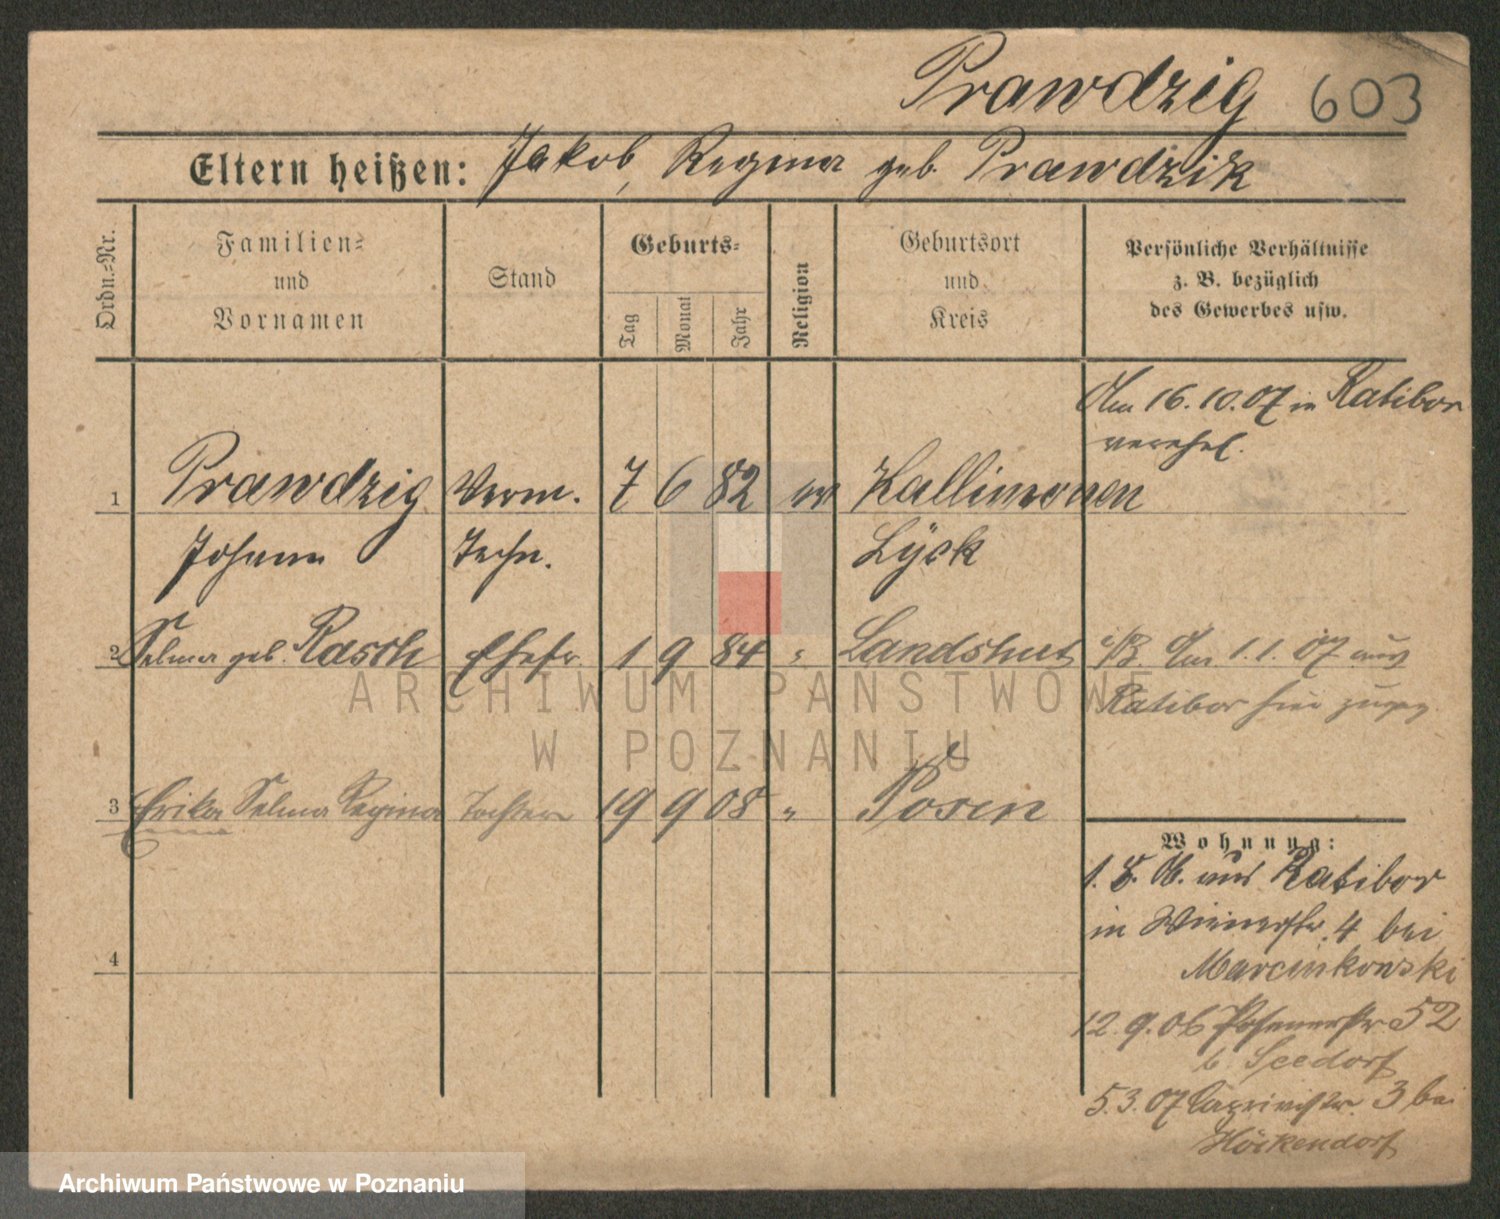 Prawdzig 603
Eltern heißen: Jakob, Regina geb. Prawdzik
Ordn.-Nr.
Familien-
und
Vornamen
Stand
Geburts-
Tag
Monat
Jahr
Religion
Geburtsort
und
Kreis
Persönliche Verhältnisse
z. B. bezüglich
des Gewerbes usw.
Am 16.10.07 in Ratibor
verehel.
1 Prawdzig Verm. 7 6 82 ev Kallinowen
Johann Techn. Lyck
2 Selma geb. Rasch Ehefr. 1 9 84 " Landshut
Am 1.1.07 aus
Ratibor hier zugez
ARCHIWUM PAŃSTWOWE
W POZNANIU
3 Erika Selma Regina Tochter 19 9 08 " Posen
4
Wohnung:
1. 8. 06. aus Ratibor
in 4 bei
Marcinkowski
12.9.06 Posenerstr 52
b. Seedorf
5.3.07 3 bei
Höckendorf
Archiwum Państwowe w Poznaniu